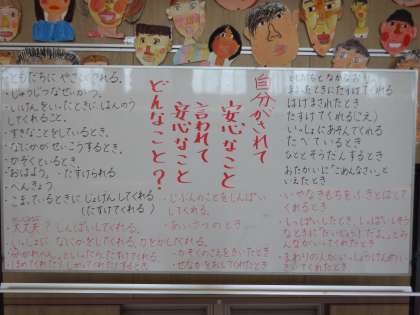 自分がされて
安心なこと
言われて
安心なこと
どんなこと？
まよったときにたすけてくれる
はげまされたとき
たすけてくれる(じえい)
いっしょにあそんでくれる
たべているとき
ひととそうだんするとき
「ごめんなさい」と
いえたとき
・いやなきもちをふきとばして
くれるとき
・しっぱいしたとき、しっぱいしそう
なときに「だいじょうぶだよ。」とみ
んながいってくれたとき
・まわりの人がいっしょうけんめい
きいてくれたとき
・ともだちにやさしくされる。
・じゅうじつなせいかつ。
・いけんをいったときに、はんのう
してくれること。
・すきなことをしているとき。
・なにかがせいこうするとき。
・かぞくといるとき。
・「おはよう。」
・へんきょう
・こまっているときに、じょげんしてくれる
(たすけてくれる)
・大丈夫？しんぱいしてくれる。
・いっしょになにかをしてくれる。
・じぶんのことをしんぱい
してくれる。
・あいさつのとき
・かぞくのこえをきいたとき
・せなかをおしてくれたとき